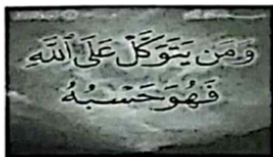 وَمَن يَتَوَكَّلْ عَلَى ٱللَّهِ
فَهُوَ حَسْبُهُ